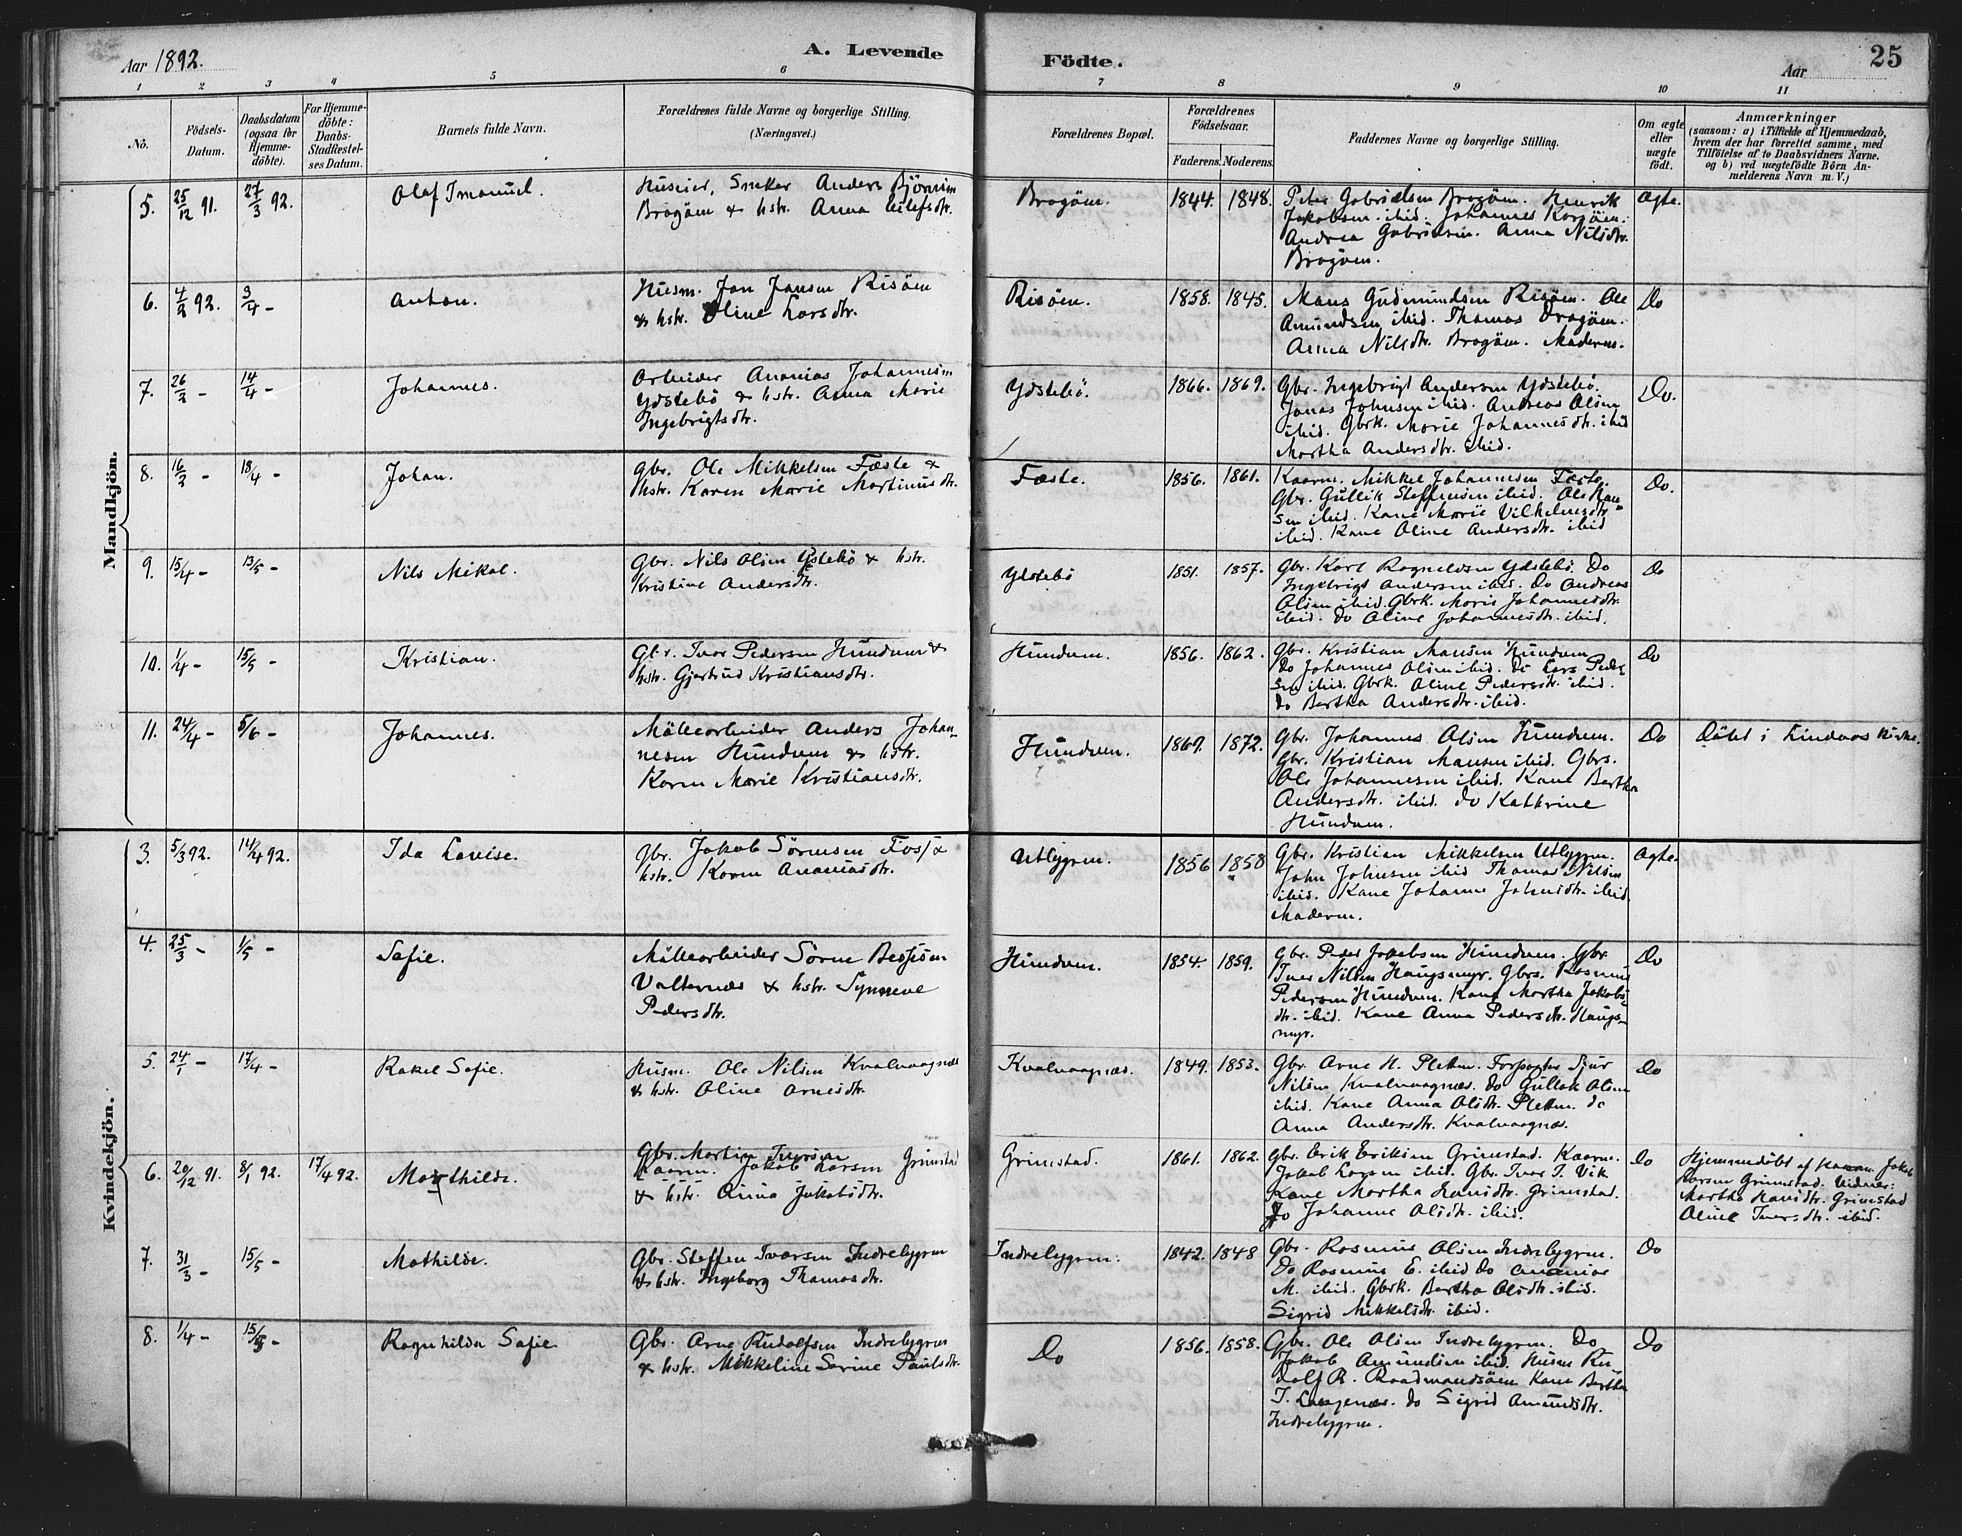 Aar 1892.
A. Levende
Födte.
Aar
25
1 2 3 4 5 6 7 8 9 10 11
No.
Födsels-
Datum.
Daabsdatum
(ogsaa for
Hjemme-
döbte).
For Hjemme-
döbte:
Daabs-
Stadfæstel-
ses Datum.
Barnets fulde Navn.
Forældrenes fulde Navne og borgerlige Stilling.
(Næringsvei.)
Forældrenes Bopæl.
Forældrenes
Födselsaar.
Faderens. Moderens.
Faddernes Navne og borgerlige Stilling.
Om ægte
eller
uægte
födt.
Anmærkninger
(saasom: a) i Tilfælde af Hjemmedaab,
hvem der har forrettet samme, med
Tilföielse af to Daabsvidners Navne,
og b) ved uægtefödte Börn An-
melderens Navn m. V.)
Mandkjön.
5. 25/12 91. 27/3 92. Olaf Imanuel.
Anders
& hstr. Anna
1844. 1848.
Peter Gabrielsen Henrik
Jakobsen ibid. Johannes
Andrea Anna Nilsdtr.
Ægte.
6. 4/2 92. 3/4 - Anton.
Husm. Jon Jonsen Risöen
& hstr. Oline Larsdtr.
Risöen.
1858. 1845.
Mons Gudmundsen Risöen. Ole
Amundsen ibid. Thomas
Anna Nilsdtr. Moderen.
Do
7. 26/2 - 14/4 - Johannes.
Arbeider Ananias Johannesen
Ydstebö & hstr. Anna Marie
Ingebrigtsdtr.
Ydstebö.
1866. 1869.
Gbr. Ingebrigt Andersen Ydstebö.
Jonas Johnsen ibid. Andreas Olsen
ibid. Gbrk. Marie Johannesdtr. ibid
Martha Andersdtr. ibid.
Do.
8. 16/2 - 18/4 - Johan.
Gbr. Ole Mikkelsen Fæste &
hstr. Karen Marie Martinusdtr.
Fæste.
1856. 1861.
Kaarm. Mikkel Johannesen Fæste.
Gbr. Gullik Steffensen ibid. Ole Han-
sen ibid. Kone Marie Vilhelmsdtr.
ibid. Kone Oline Andersdtr. ibid
Do.
9. 15/4 - 13/5 - Nils Mikal.
Gbr. Nils Olsen Ystebö & hstr.
Kristine Andersdtr.
Ydstebö
1851. 1857.
Gbr. Karl Ydstebö. Do
Ingebrigt Andersen ibid. Do Andreas
Olsen ibid. Gbrk. Marie Johannesdtr.
ibid. do Oline Johannesdtr. ibid.
Do
10. 1/4 - 15/5 - Kristian.
Gbr. Ivar Pedersen Hundven &
hstr. Gjertrud Kristiansdtr.
Hundven.
1856. 1862.
Gbr. Kristian Monsen Hundven
Do Johannes Olsen ibid. do Lars Peder-
sen ibid. Gbrk. Oline Pedersdtr. ibid.
do Bertha Andersdtr. ibid.
Do
11. 24/4 - 5/6 - Johannes.
Möllearbeider Anders Johan-
nesen Hundven & hstr.
Karen Marie Kristiansdtr.
Hundven.
1869. 1872.
Gbr. Johannes Olsen Hundven.
Gbr. Kristian Monsen ibid. Gbrs.
Ole Johannesen ibid. Kone Bertha
Andersdtr. ibid. do Kathrine
Hundven.
Do
Döbt i Lindaas Kirke.
Kvindekjön.
3. 5/3 92. 14/4 92. Ida Lovise.
Gbr. Jakob Sörensen &
hstr. Karen Ananiasdtr.
Utlygren.
1856 1858
Gbr. Kristian Mikkelsen Utlygren.
John Johnsen ibid Thomas Nilsen
ibid. Kone Johanne Johnsdtr. ibid
Moderen.
Ægte
4. 25/3 - 1/5 - Sofie.
Möllearbeider Sören
& hstr. Synneve
Pedersdtr.
Hundven.
1854. 1859.
Gbr. Peder Jakobsen Hundven. Gbr.
Iver Nilsen Haugsmyr. Gbrs. Rasmus
Pedersen Hundven. Kone Martha Jakobs-
dtr. ibid. Kone Anna Pedersdtr. Haugs-
myr.
Do
5. 24/1 - 17/4 - Rakel Sofie.
Husm. Ole Nilsen Kvalvaagnæs
& hstr. Oline Arnesdtr.
Kvalvaagnæs.
1849. 1853.
Gbr. Arne H. Pletten. Forpagter Sjur
Nilsen Kvalvaagnæs. Do Gullak Olsen
ibid. Kone Anna Olsdtr. Pletten. do
Anna Andersdtr. Kvalvaagnæs.
Do
6. 20/12 91. 8/1 92. 17/4 92. Mathilde.
Gbr. Martin Iversen
Kaarm. Jakob Larsen Grimstad
& hstr. Anna Jakobsdtr.
Grimstad.
1861. 1862.
Gbr. Erik Eriksen Grimstad. Kaarm.
Jakob Larsen ibid. Gbr. Ivar I. Vik
Kone Martha Hansdtr. Grimstad.
Do Johanne Olsdtr. ibid.
Do
Hjemmedöbt af Kaarm. Jakob
Larsen Grimstad. Vidner:
Martha Hansdtr. Grimstad
Oline Iversdtr. ibid.
7. 31/3 - 15/5 - Mathilde.
Gbr. Steffen Ivarsen Indrelygren
& hstr. Ingeborg Thomasdtr.
Indrelygren.
1842. 1848
Gbr. Rasmus Olsen Indrelygren.
Do Rasmus E. ibid do Ananias
M. ibid. Gbrk. Bertha Olsdtr. ibid.
Sigrid Mikkelsdtr. ibid.
Do
8. 1/4 - 15/5 - Ragnhilda Sofie.
Gbr. Arne Rudolfsen Indrelygren
& hstr. Mikkeline Serine Paulsdtr.
Do
1856. 1858.
Gbr. Ole Olsen Indrelygren. Do
Jakob Amundsen ibid. Husm Ru-
dolf R. Raadmandsöen Kone Bertha
I. do Sigrid Amundsdtr.
Indrelygren.
Do